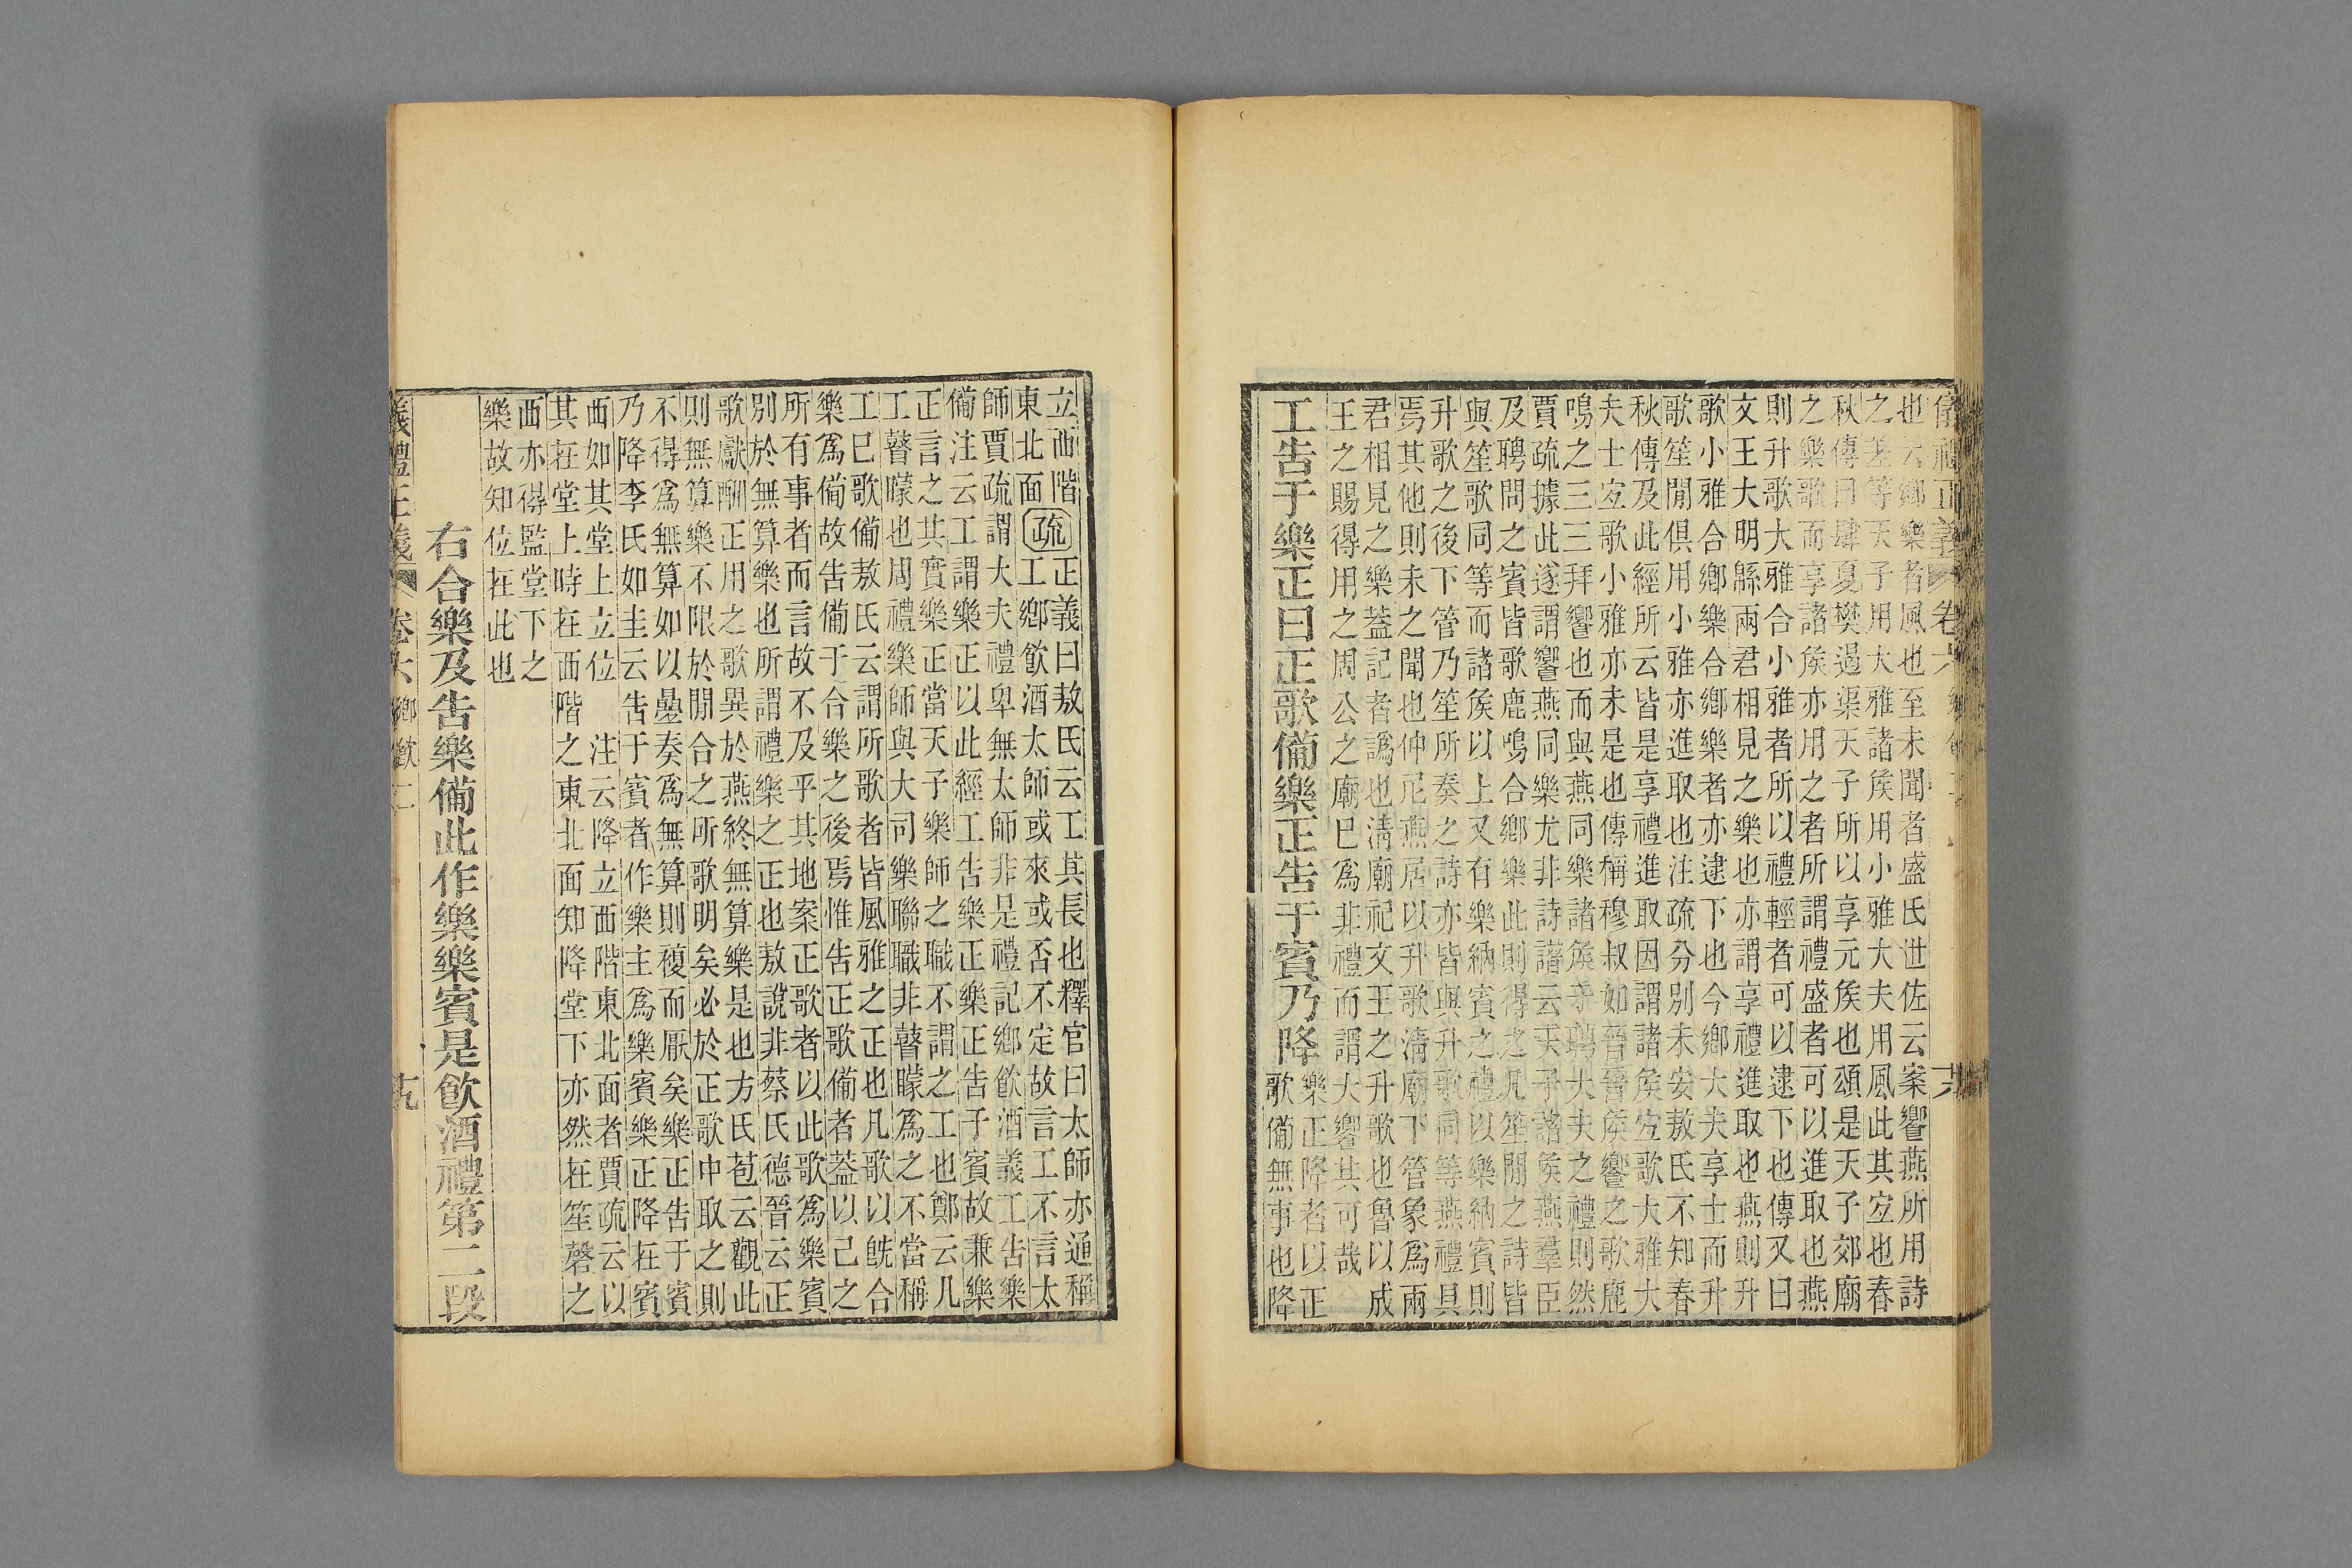 儀禮正義 卷六 鄉飲二 十八
也云鄉樂者風也至未聞者盛氏世佐云案饗燕所用詩
之差等天子用大雅諸矦用小雅大夫用風此其宜也春
秋傳曰肆夏樊遏渠天子所以享元矦也頌是天子郊廟
之樂歌而享諸矦亦用之者所謂禮盛者可以進取也燕
則升歌大雅合小雅者所以禮輕者可以逮下也傳又曰
文王大明緜兩君相見之樂也亦謂享禮進取也燕則升
歌小雅合鄉樂合鄉樂者亦逮下也今鄉大夫享士而升
歌笙閒俱用小雅亦進取也注疏分別未安敖氏不知春
秋傳及此經所云皆是享禮進取因謂諸矦宜歌大雅大
夫士宜歌小雅亦未是也傳稱穆叔如晉晉矦饗之歌鹿
鳴之三三拜饗也而與燕同樂諸矦于聘大夫之禮則然
賈疏據此遂謂饗燕同樂尤非詩譜云天子諸矦燕羣臣
及聘問之賓皆歌鹿鳴合鄉樂此則得之凡笙閒之詩皆
與笙歌同等而諸矦以上又有樂納賓之禮以樂納賓則
升歌之後下管乃笙所奏之詩亦皆與升歌同等燕禮具
焉其他則未之聞也仲尼燕居以升歌清廟下管象爲兩
君相見之樂蓋記者譌也清廟祀文王之升歌也魯以成
王之賜得用之周公之廟巳爲非禮而謂大饗其可哉
工告于樂正曰正歌備樂正告于賓乃降
樂正降者以正
歌備無事也降
立西階
東北面疏
正義曰敖氏云工其長也釋官曰太師亦通稱
工鄉飮酒太師或來或否不定故言工不言太
師賈疏謂大夫禮卑無太師非是禮記鄉飮酒義工告樂
備注云工謂樂正以此經工告樂正樂正告于賓故兼樂
正言之其實樂正當天子樂師之職不謂之工也鄭云凡
工瞽矇也周禮樂師與大司樂聯職非瞽矇爲之不當稱
工巳歌備敖氏云謂所歌者皆風雅之正也凡歌以旣合
樂爲備故告備于合樂之後焉惟告正歌備者蓋以己之
所有事者而言故不及乎其地案正歌者以此歌爲樂賓
別於無算樂也所謂禮樂之正也敖說非蔡氏德晉云正
歌獻酬正用之歌異於燕終無算樂是也方氏苞云觀此
則無算樂不限於閒合之所歌明矣必於正歌中取之則
不得爲無算如以曡奏爲無算則複而厭矣樂正告于賓
乃降李氏如圭云告于賓者作樂主爲樂賓樂正降在賓
西如其堂上立位 注云降立西階東北面者賈疏云以
其在堂上時在西階之東北面知降堂下亦然在笙磬之
西亦得監堂下之
樂故知位在此也
右合樂及告樂備此作樂樂賓是飮酒禮第二段
儀禮正義 卷六 鄉飮二 十九